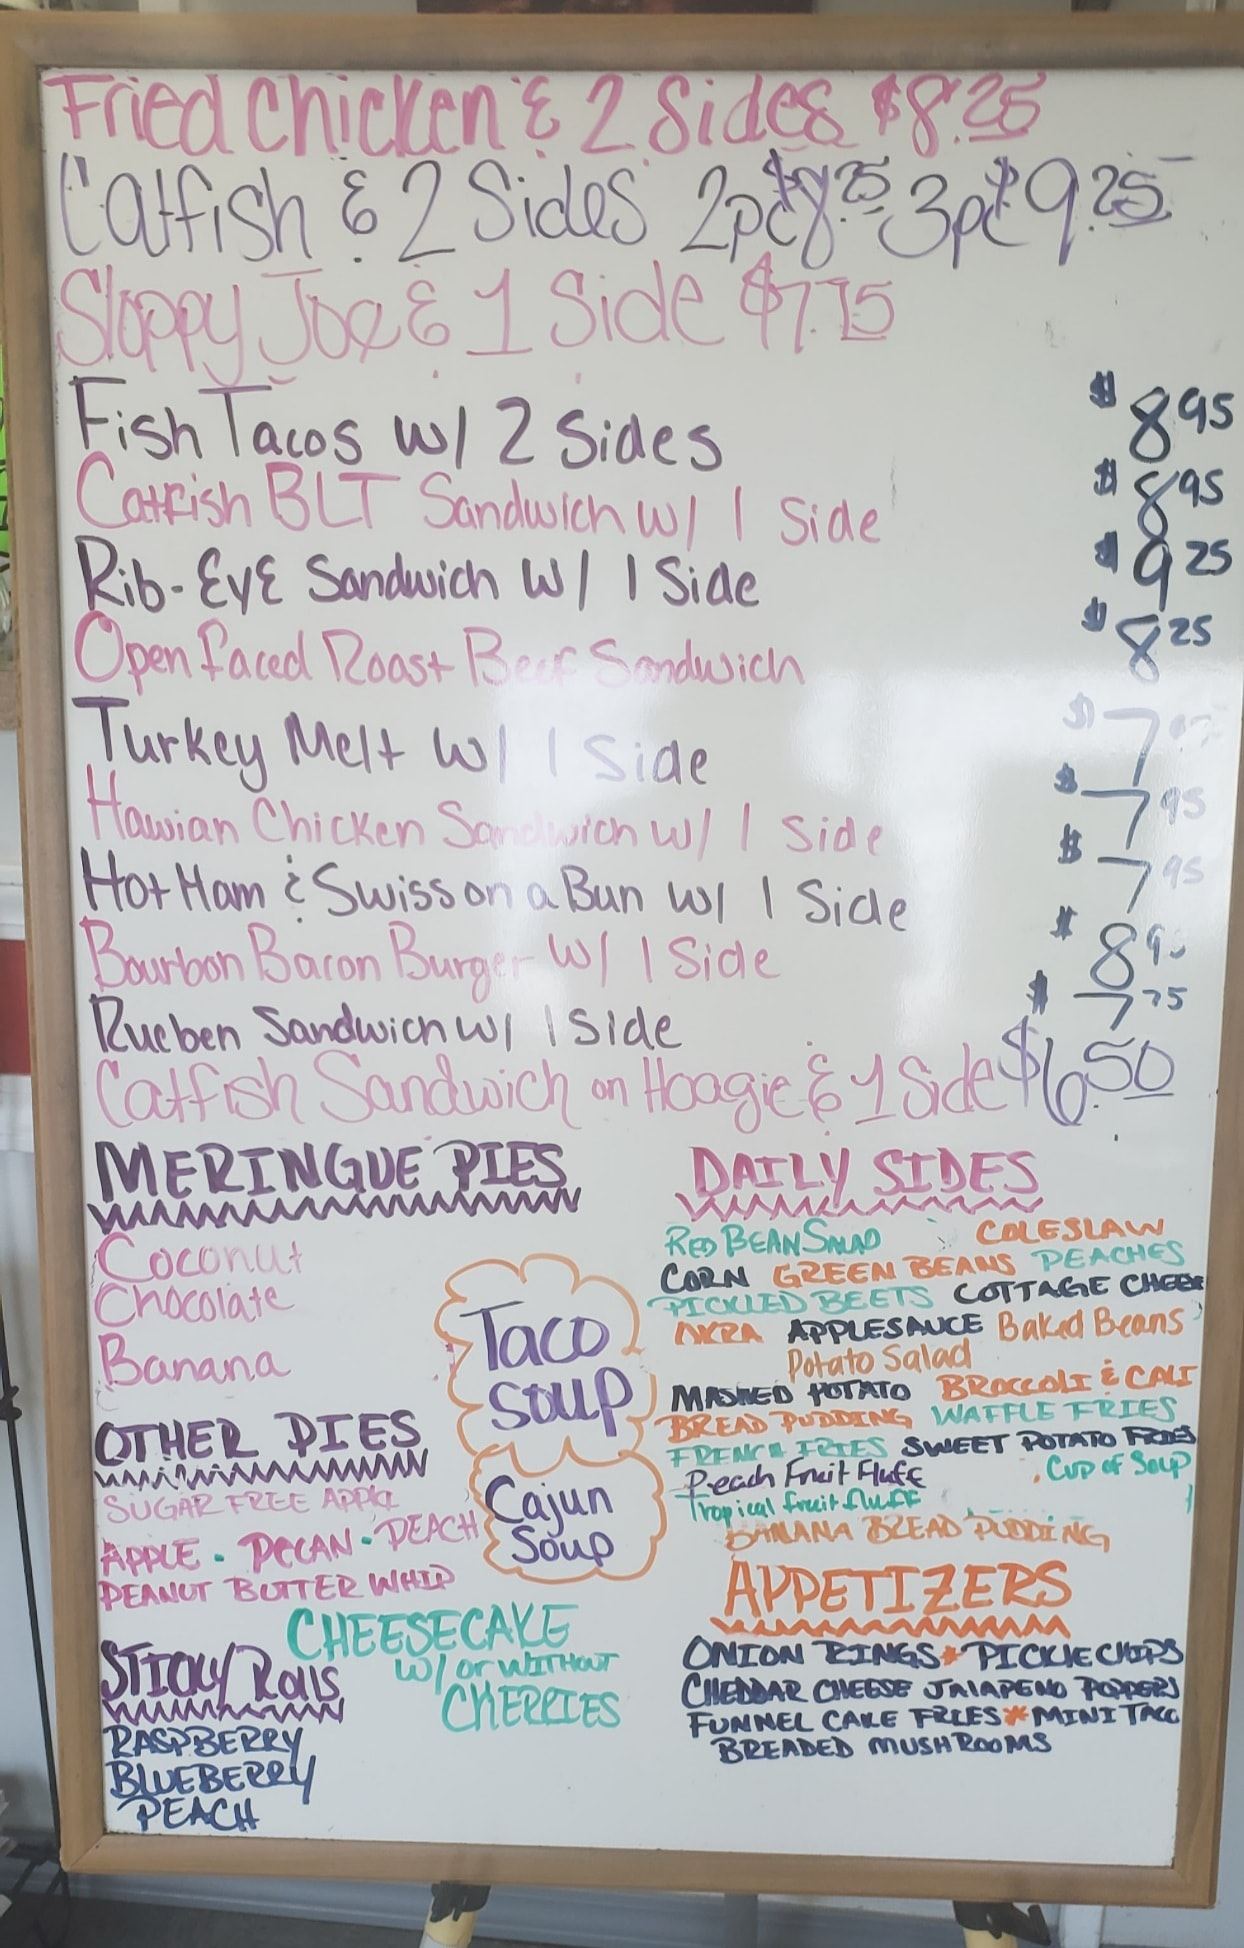 Fried Chicken & 2 Sides $8.25
Catfish & 2 Sides 2pc $8.25 3pc $9.25
Sloppy Joe & 1 Side $7.75
Fish Tacos w/ 2 Sides $8.95
Catfish BLT Sandwich w/ 1 Side $8.95
Rib-EyE Sandwich w/ 1 Side $9.25
Open faced Roast Beef Sandwich $8.25
Turkey Melt w/ 1 Side $7
Hawian Chicken Sandwich w/ 1 Side $7.95
Hot Ham & Swiss on a Bun w/ 1 Side $7.95
Bourbon Bacon Burger w/ 1 Side $8
Rueben Sandwich w/ 1 Side $7.75
Catfish Sandwich on Hoagie & 1 Side $6.50
MERINGUE PIES
Coconut
Chocolate
Banana
OTHER PIES
SUGAR FREE APPLE
APPLE • PECAN • PEACH
PEANUT BUTTER WHIP
CHEESECAKE
W/ or WITHOUT
CHERRIES
STICKY Rolls
RASPBERRY
BLUEBERRY
PEACH
Taco
Soup
Cajun
Soup
DAILY SIDES
RED BEAN SALAD COLESLAW
CORN GREEN BEANS PEACHES
PICKLED BEETS COTTAGE CHEESE
OKRA APPLESAUCE Baked Beans
Potato Salad
MASHED POTATO BROCCOLI & CALI
BREAD PUDDING WAFFLE FRIES
FRENCH FRIES SWEET POTATO FRIES
Peach Fruit Fluff Cup of Soup
Tropical fruit fluff
BANANA BREAD PUDDING
APPETIZERS
ONION RINGS * PICKLE CHIPS
CHEDDAR CHEESE JALAPENO POPPERS
FUNNEL CAKE FRIES * MINI TACO
BREADED MUSHROOMS